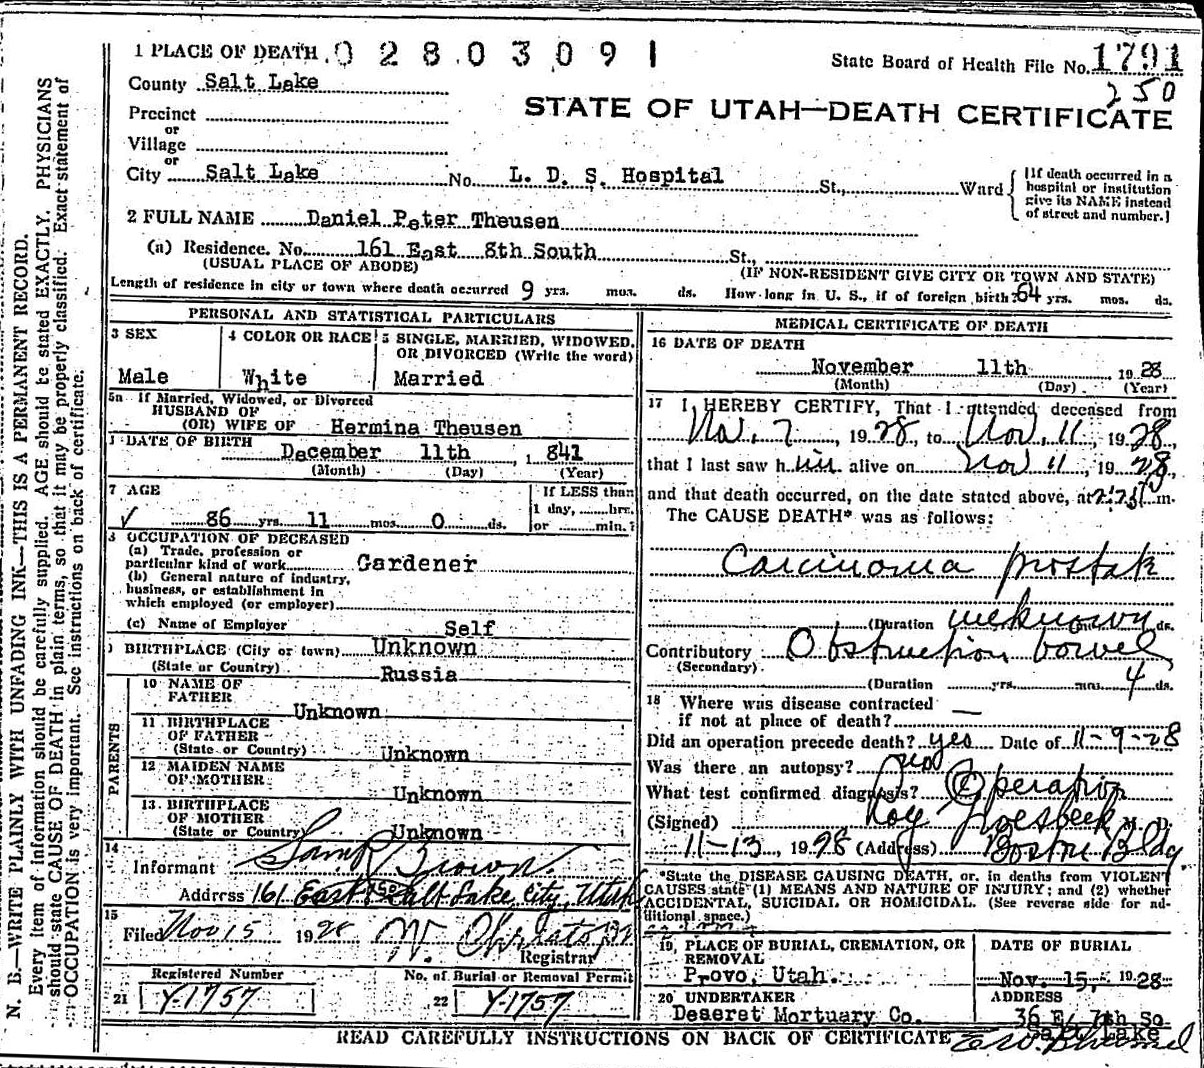 1 PLACE OF DEATH. 02803091
State Board of Health File No. 1791
250
County Salt Lake
STATE OF UTAH—DEATH CERTIFICATE
Precinct
or
Village
or
City Salt Lake No. L. D. S. Hospital St., Ward
[If death occurred in a hospital or institution give its NAME instead of street and number.]
2 FULL NAME Daniel Peter Theusen
(a) Residence. No. 161 East 8th South St.,
(USUAL PLACE OF ABODE) (IF NON-RESIDENT GIVE CITY OR TOWN AND STATE)
Length of residence in city or town where death occurred 9 yrs. mos. ds. How long in U. S., if of foreign birth? 64 yrs. mos. ds.
PERSONAL AND STATISTICAL PARTICULARS
3 SEX
Male
4 COLOR OR RACE
White
5 SINGLE, MARRIED, WIDOWED, OR DIVORCED (Write the word)
Married
5a If Married, Widowed, or Divorced
HUSBAND OF
(OR) WIFE OF Hermina Theusen
DATE OF BIRTH
December 11th, 1841
(Month) (Day) (Year)
7 AGE
✓ 86 yrs. 11 mos. 0 ds.
If LESS than
1 day, hrs.
or min.?
8 OCCUPATION OF DECEASED
(a) Trade, profession or
particular kind of work Gardener
(b) General nature of industry,
business, or establishment in
which employed (or employer)
(c) Name of Employer Self
BIRTHPLACE (City or town) Unknown
(State or Country) Russia
PARENTS
10 NAME OF
FATHER Unknown
11 BIRTHPLACE
OF FATHER
(State or Country) Unknown
12 MAIDEN NAME
OF MOTHER Unknown
13 BIRTHPLACE
OF MOTHER
(State or Country) Unknown
14
Informant Saml Brown.
Address 161 East 8 So Salt Lake City, Utah
15
Filed Nov 15 1928
Registrar
Registered Number
21 Y-1757
No. of Burial or Removal Permit
22 Y-1757
MEDICAL CERTIFICATE OF DEATH
16 DATE OF DEATH
November 11th 1928
(Month) (Day) (Year)
17 I HEREBY CERTIFY, That I attended deceased from
Nov. 7, 1928, to Nov. 11, 1928,
that I last saw him alive on Nov 11, 1928,
and that death occurred, on the date stated above, at m.
The CAUSE DEATH* was as follows:
Carcinoma prostate
(Duration unknown ds.
Contributory Obstruction bowel
(Secondary)
(Duration yrs. mos. 4 ds.
18 Where was disease contracted
if not at place of death? —
Did an operation precede death? yes Date of 11-9-28
Was there an autopsy? no
What test confirmed diagnosis? Operation
(Signed) Roy Groesbeck M. D.
11-13, 1928 (Address) Boston Bldg.
*State the DISEASE CAUSING DEATH, or, in deaths from VIOLENT
CAUSES state (1) MEANS AND NATURE OF INJURY; and (2) whether
ACCIDENTAL, SUICIDAL OR HOMICIDAL. (See reverse side for ad-
ditional space.)
19 PLACE OF BURIAL, CREMATION, OR
REMOVAL
Provo, Utah.
DATE OF BURIAL
Nov. 15, 1928
20 UNDERTAKER
Deseret Mortuary Co.
ADDRESS
36 E. 7th So
Salt Lake
READ CAREFULLY INSTRUCTIONS ON BACK OF CERTIFICATE
N. B.—WRITE PLAINLY WITH UNFADING INK—THIS IS A PERMANENT RECORD.
Every item of information should be carefully supplied. AGE should be stated EXACTLY. PHYSICIANS
should state CAUSE OF DEATH in plain terms, so that it may be properly classified. Exact statement of
OCCUPATION is very important. See instructions on back of certificate.